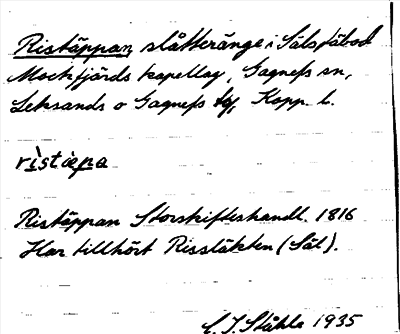 Ristäppan, slåtteränge i Säls fäbod
Mockfjärds kapellag, Gagnefs sn,
Leksands o Gagnefs tg, Kopp. l.
ristäpa
Ristäppan Storskifteshandl. 1816
Har tillhört Rissläkten (Säl).
C. J. Ståhle 1935